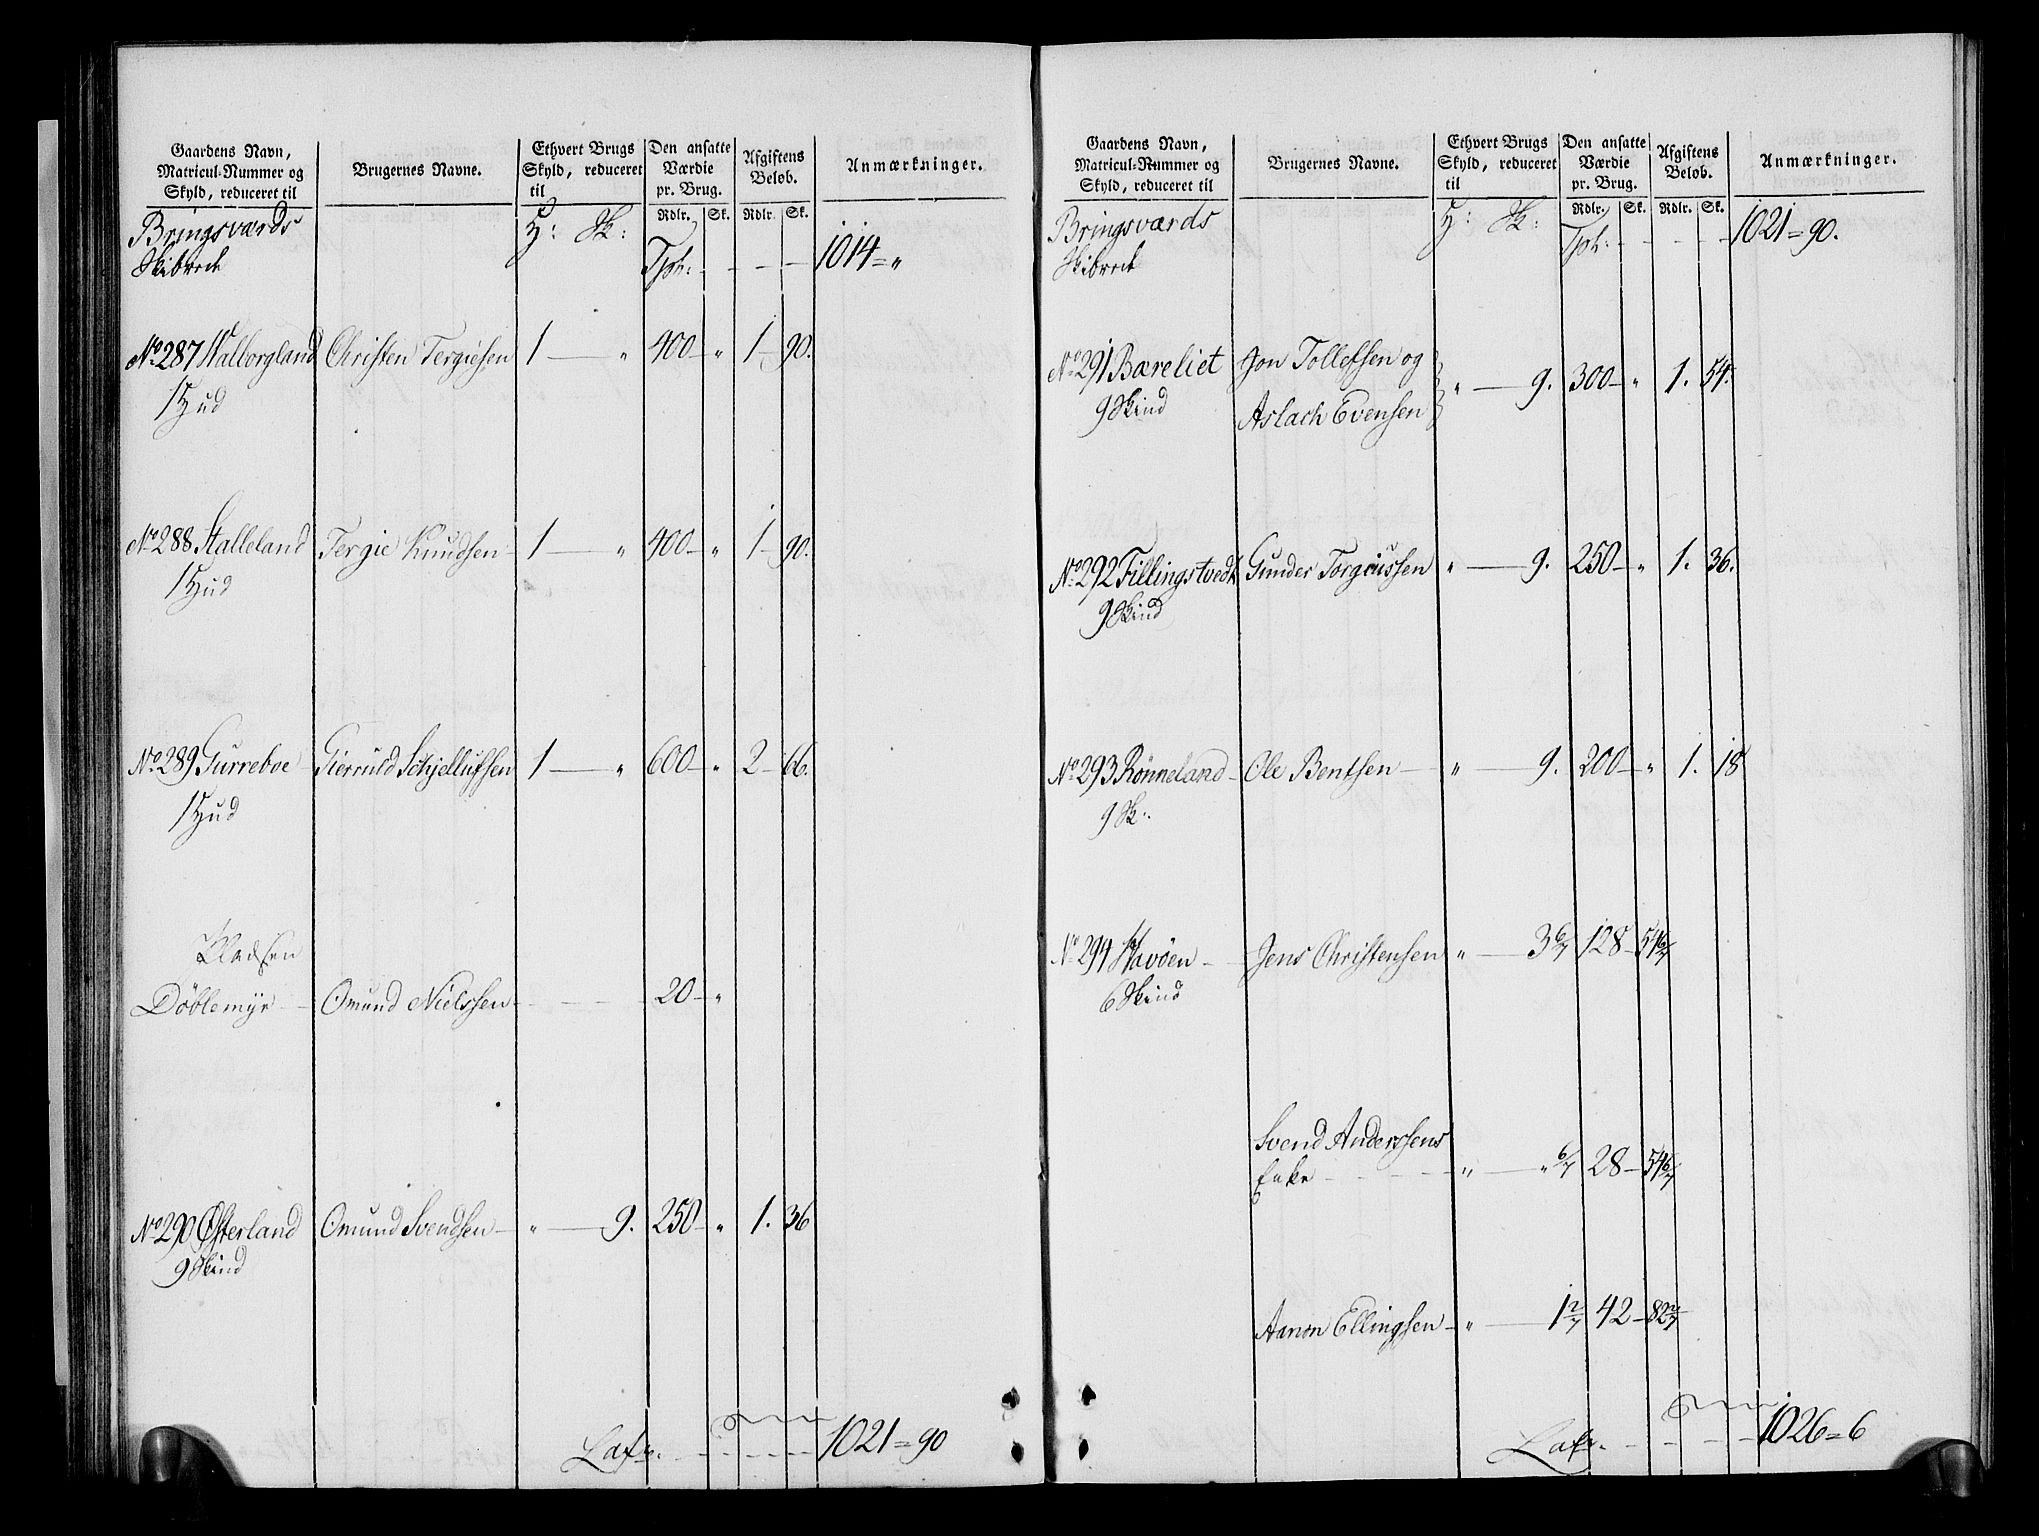 Gaardens Navn,
Matricul-Nummer og
Skyld, reduceret til
Brugernes Navne.
Ethvert Brugs
Skyld, reduceret
til
Den ansatte
Værdie
pr. Brug.
Rdlr. Sk.
Afgiftens
Beløb.
Rdlr. Sk.
Anmærkninger.
Bringsværds
Skibrede
H: Sk:
Tpt: - - - 1014 = "
No 287 Walborgland Christen Tergiesen 1 — " 400 — " 1 — 90.
1 Hud
No 288 Stalleland Tergie Knudsen 1 — " 400 — " 1 — 90.
1 Hud
No 289 Gurreboe Gierruld Schjellufsen 1 — " 600 — " 2 — 66.
1 Hud
Pladsen
Döblemyr — Omund Nielssen - - - 20 — "
No 290 Østerland Omund Svendsen — " — 9. 250 — " 1. 36
9 Skind
Lats. - - - 1021 = 90
Gaardens Navn,
Matricul-Nummer og
Skyld, reduceret til
Brugernes Navne.
Ethvert Brugs
Skyld, reduceret
til
Den ansatte
Værdie
pr. Brug.
Rdlr. Sk.
Afgiftens
Beløb.
Rdlr. Sk.
Anmærkninger.
Bringsværds
Skibrede
H: Sk:
Tpt: - - - 1021 = 90.
No 291 Bæreliet Jon Tollefsen og
Aslach Evensen " — 9. 300 — " 1. 54.
9 Skind
No 292 Fillingstvedt Gunder Torgiussen " — 9. 250 — " 1. 36.
9 Skind
No 293 Rönneland — Ole Bentsen — " — 9. 200 — " 1. 18
9 Sk:
No 294 Havöen — Jens Christensen " — 3 6/7 128 — 54 6/7
6 Skind
Svend Anderssens
Enke - - - " — " 6/7 28 — 54 6/7
Aanon Ellingsen — " — 1 2/7 42 — 82 2/7
Lats. - - - 1026 = 6